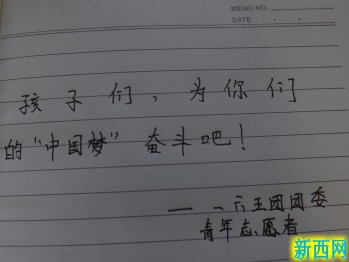 MEMO NO.
DATE
孩子们、为你们
的“中国梦”奋斗吧！
——一六五团团委
青年志愿者
新西网